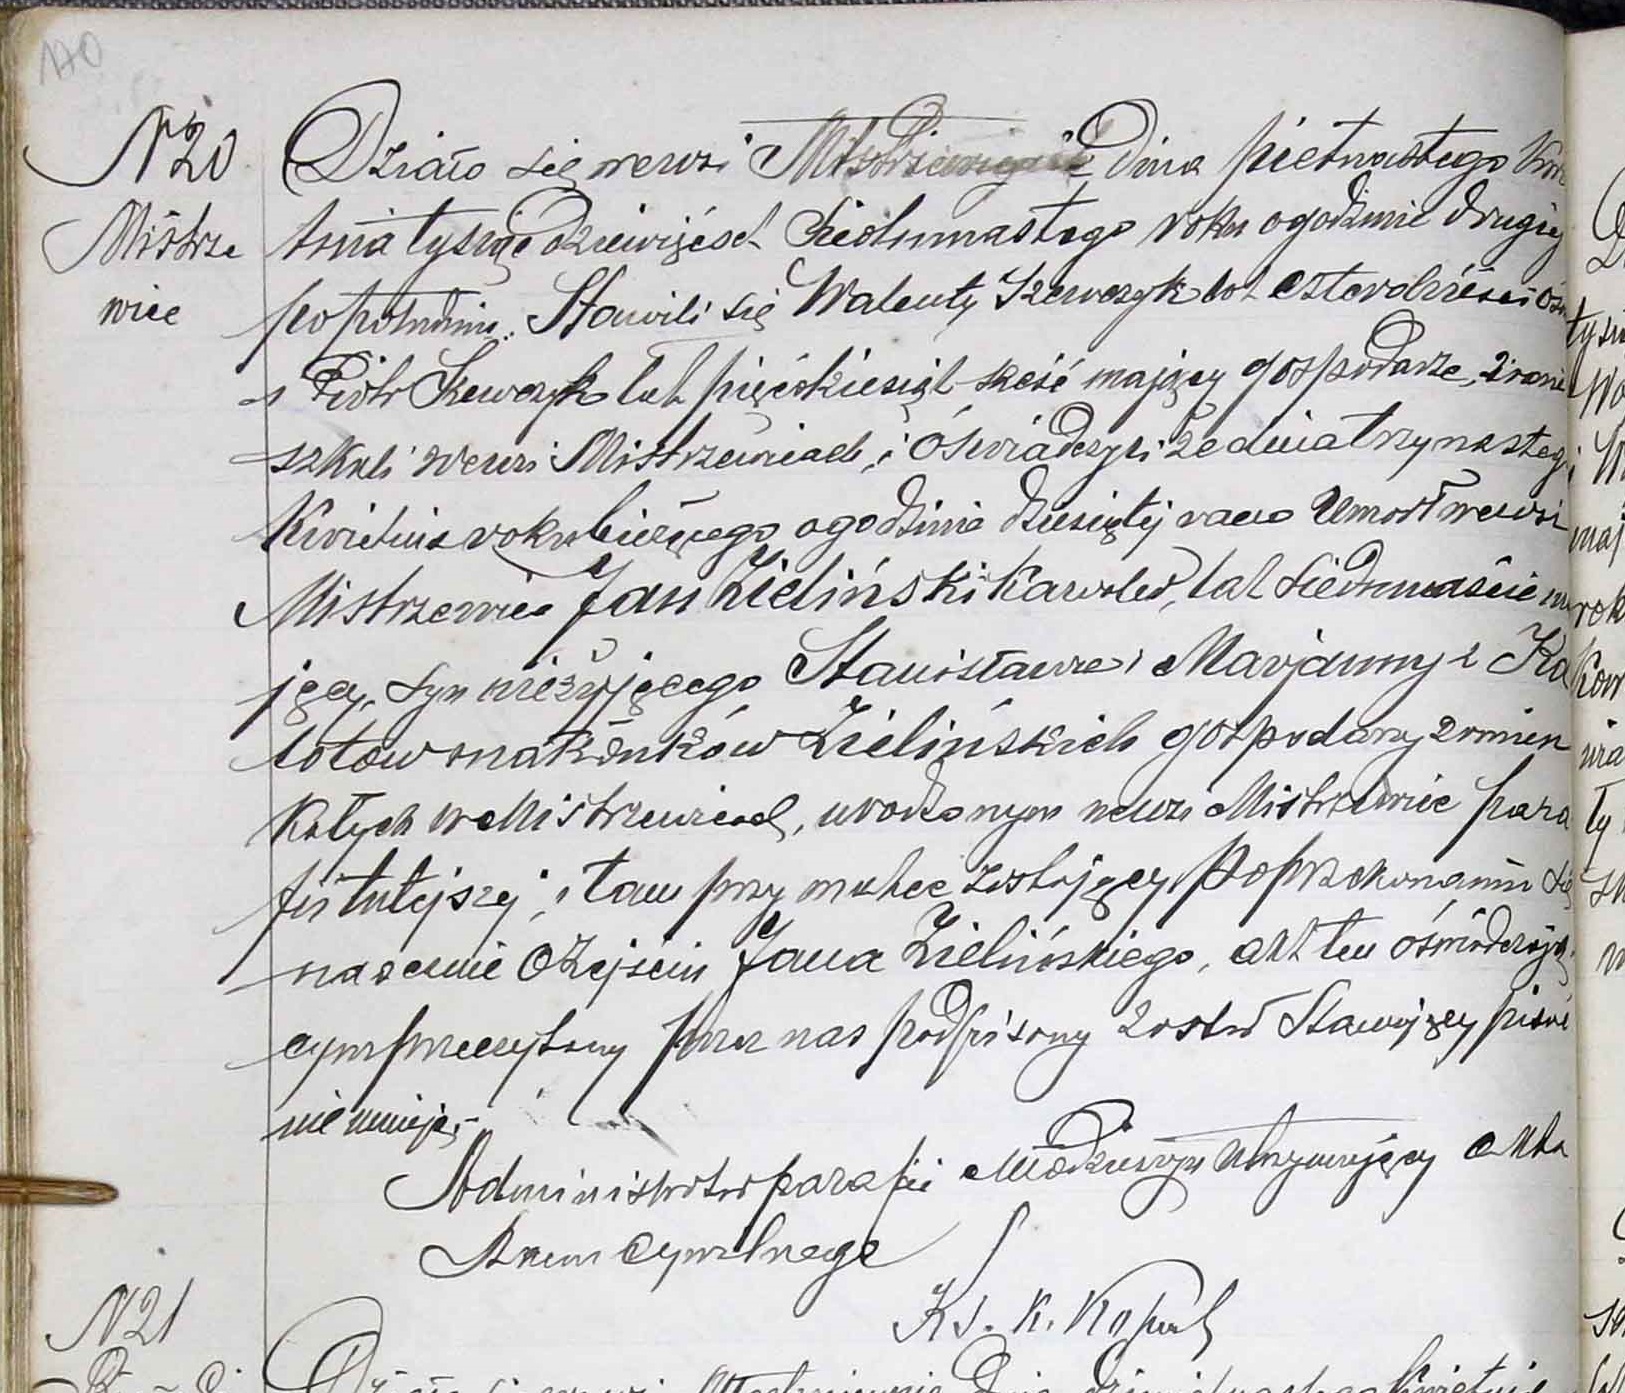 170
N 20
Mistrze
wice
Działo się wewsi Mistrzewicach Dnia pietnastego Kwie
tnia tysiąc dziewięćset siedumnastego roku ogodzinie drugiej
popołudniu. Stawili się Walenty Szewczyk lat czterdzieści ośm
i Piotr Szewczyk lat pięćdziesiąt sześć mający gospodarze, zamie
szkali wewsi Mistrzewicach, i Oświadczyli że dnia trzynastego
Kwietnia roku bieżącego ogodzinie dziesiątej rano Umarł wewsi
Mistrzewice Jan Zieliński Kawaler, lat siedmnaście ma
jący, syn nieżyjącego Stanisława i Marjanny z
małżonków Zielińskich gospodarzy zamiesz
kałych w Mistrzewicach, urodzonym wewsi Mistrzewice para
fii tutejszej, i tam przy matce zostający, Po przekonaniu się
naocznie O zejściu Jana Zielińskiego, akt ten oświadczają
cym przeczytany przez nas podpisany został Stawający pisać
nie umieją.-
Administrator parafii Utrzymujący akta
Stanu Cywilnego
Ks. K.
N 21